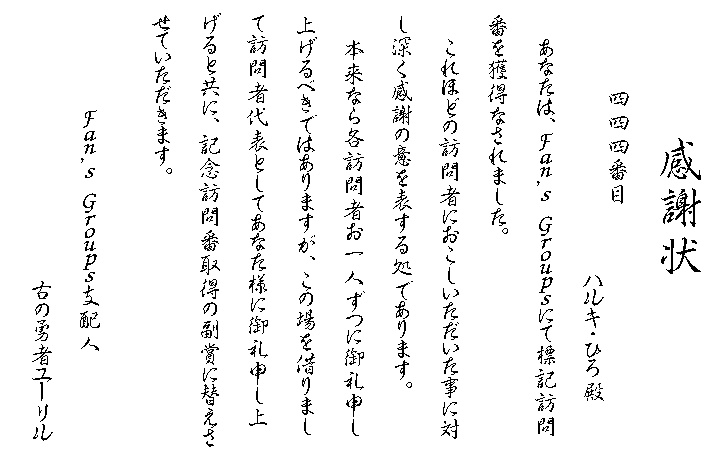 感謝状
四四四番目
ハルキ・ひろ殿
あなたは、Fan's Groupsにて標記訪問
番を獲得なされました。
これほどの訪問者におこしいただいた事に対
し深く感謝の意を表する処であります。
本来なら各訪問者お一人ずつに御礼申し
上げるべきではありますが、この場を借りまし
て訪問者代表としてあなた様に御礼申し上
げると共に、記念訪問番取得の副賞に替えさ
せていただきます。
Fan's Groups支配人
古の勇者ユーリル